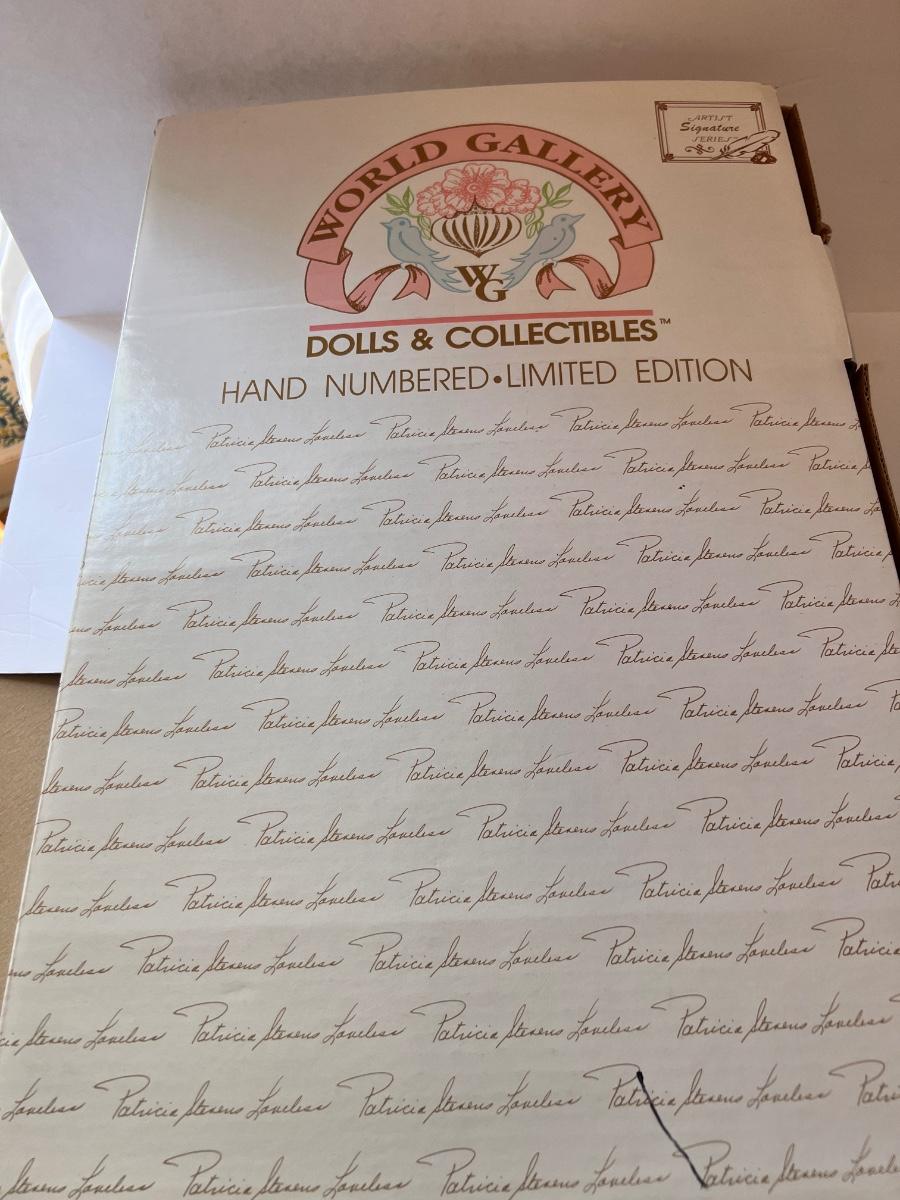 ARTIST
Signature
SERIES
WORLD GALLERY
WG
DOLLS & COLLECTIBLES™
HAND NUMBERED • LIMITED EDITION
Loveless Patricia Stevens Loveless Patricia Stevens Loveless Patricia Stevens Loveless Patricia Stevens
Stevens Loveless Patricia Stevens Loveless Patricia Stevens Loveless Patricia Stevens Loveless Patricia
Loveless Patricia Stevens Loveless Patricia Stevens Loveless Patricia Stevens Loveless Patricia Stevens
Stevens Loveless Patricia Stevens Loveless Patricia Stevens Loveless Patricia Stevens Loveless Patricia
Loveless Patricia Stevens Loveless Patricia Stevens Loveless Patricia Stevens Loveless Patricia Stevens
Stevens Loveless Patricia Stevens Loveless Patricia Stevens Loveless Patricia Stevens Loveless Patricia
Patricia Stevens Loveless Patricia Stevens Loveless Patricia Stevens Loveless Patricia Stevens Loveless
Stevens Loveless Patricia Stevens Loveless Patricia Stevens Loveless Patricia Stevens Loveless Patricia
Patricia Stevens Loveless Patricia Stevens Loveless Patricia Stevens Loveless Patricia Stevens Loveless
Stevens Loveless Patricia Stevens Loveless Patricia Stevens Loveless Patricia Stevens Loveless Patri
Loveless Patricia Stevens Loveless Patricia Stevens Loveless Patricia Stevens Loveless Patricia
Stevens Loveless Patricia Stevens Loveless Patricia Stevens Loveless Patricia Stevens Loveless
Loveless Patricia Stevens Loveless Patricia Stevens Loveless Patricia Stevens Loveless Patri
Stevens Loveless Patricia Stevens Loveless Patricia Stevens Loveless Patricia Stevens Lovele